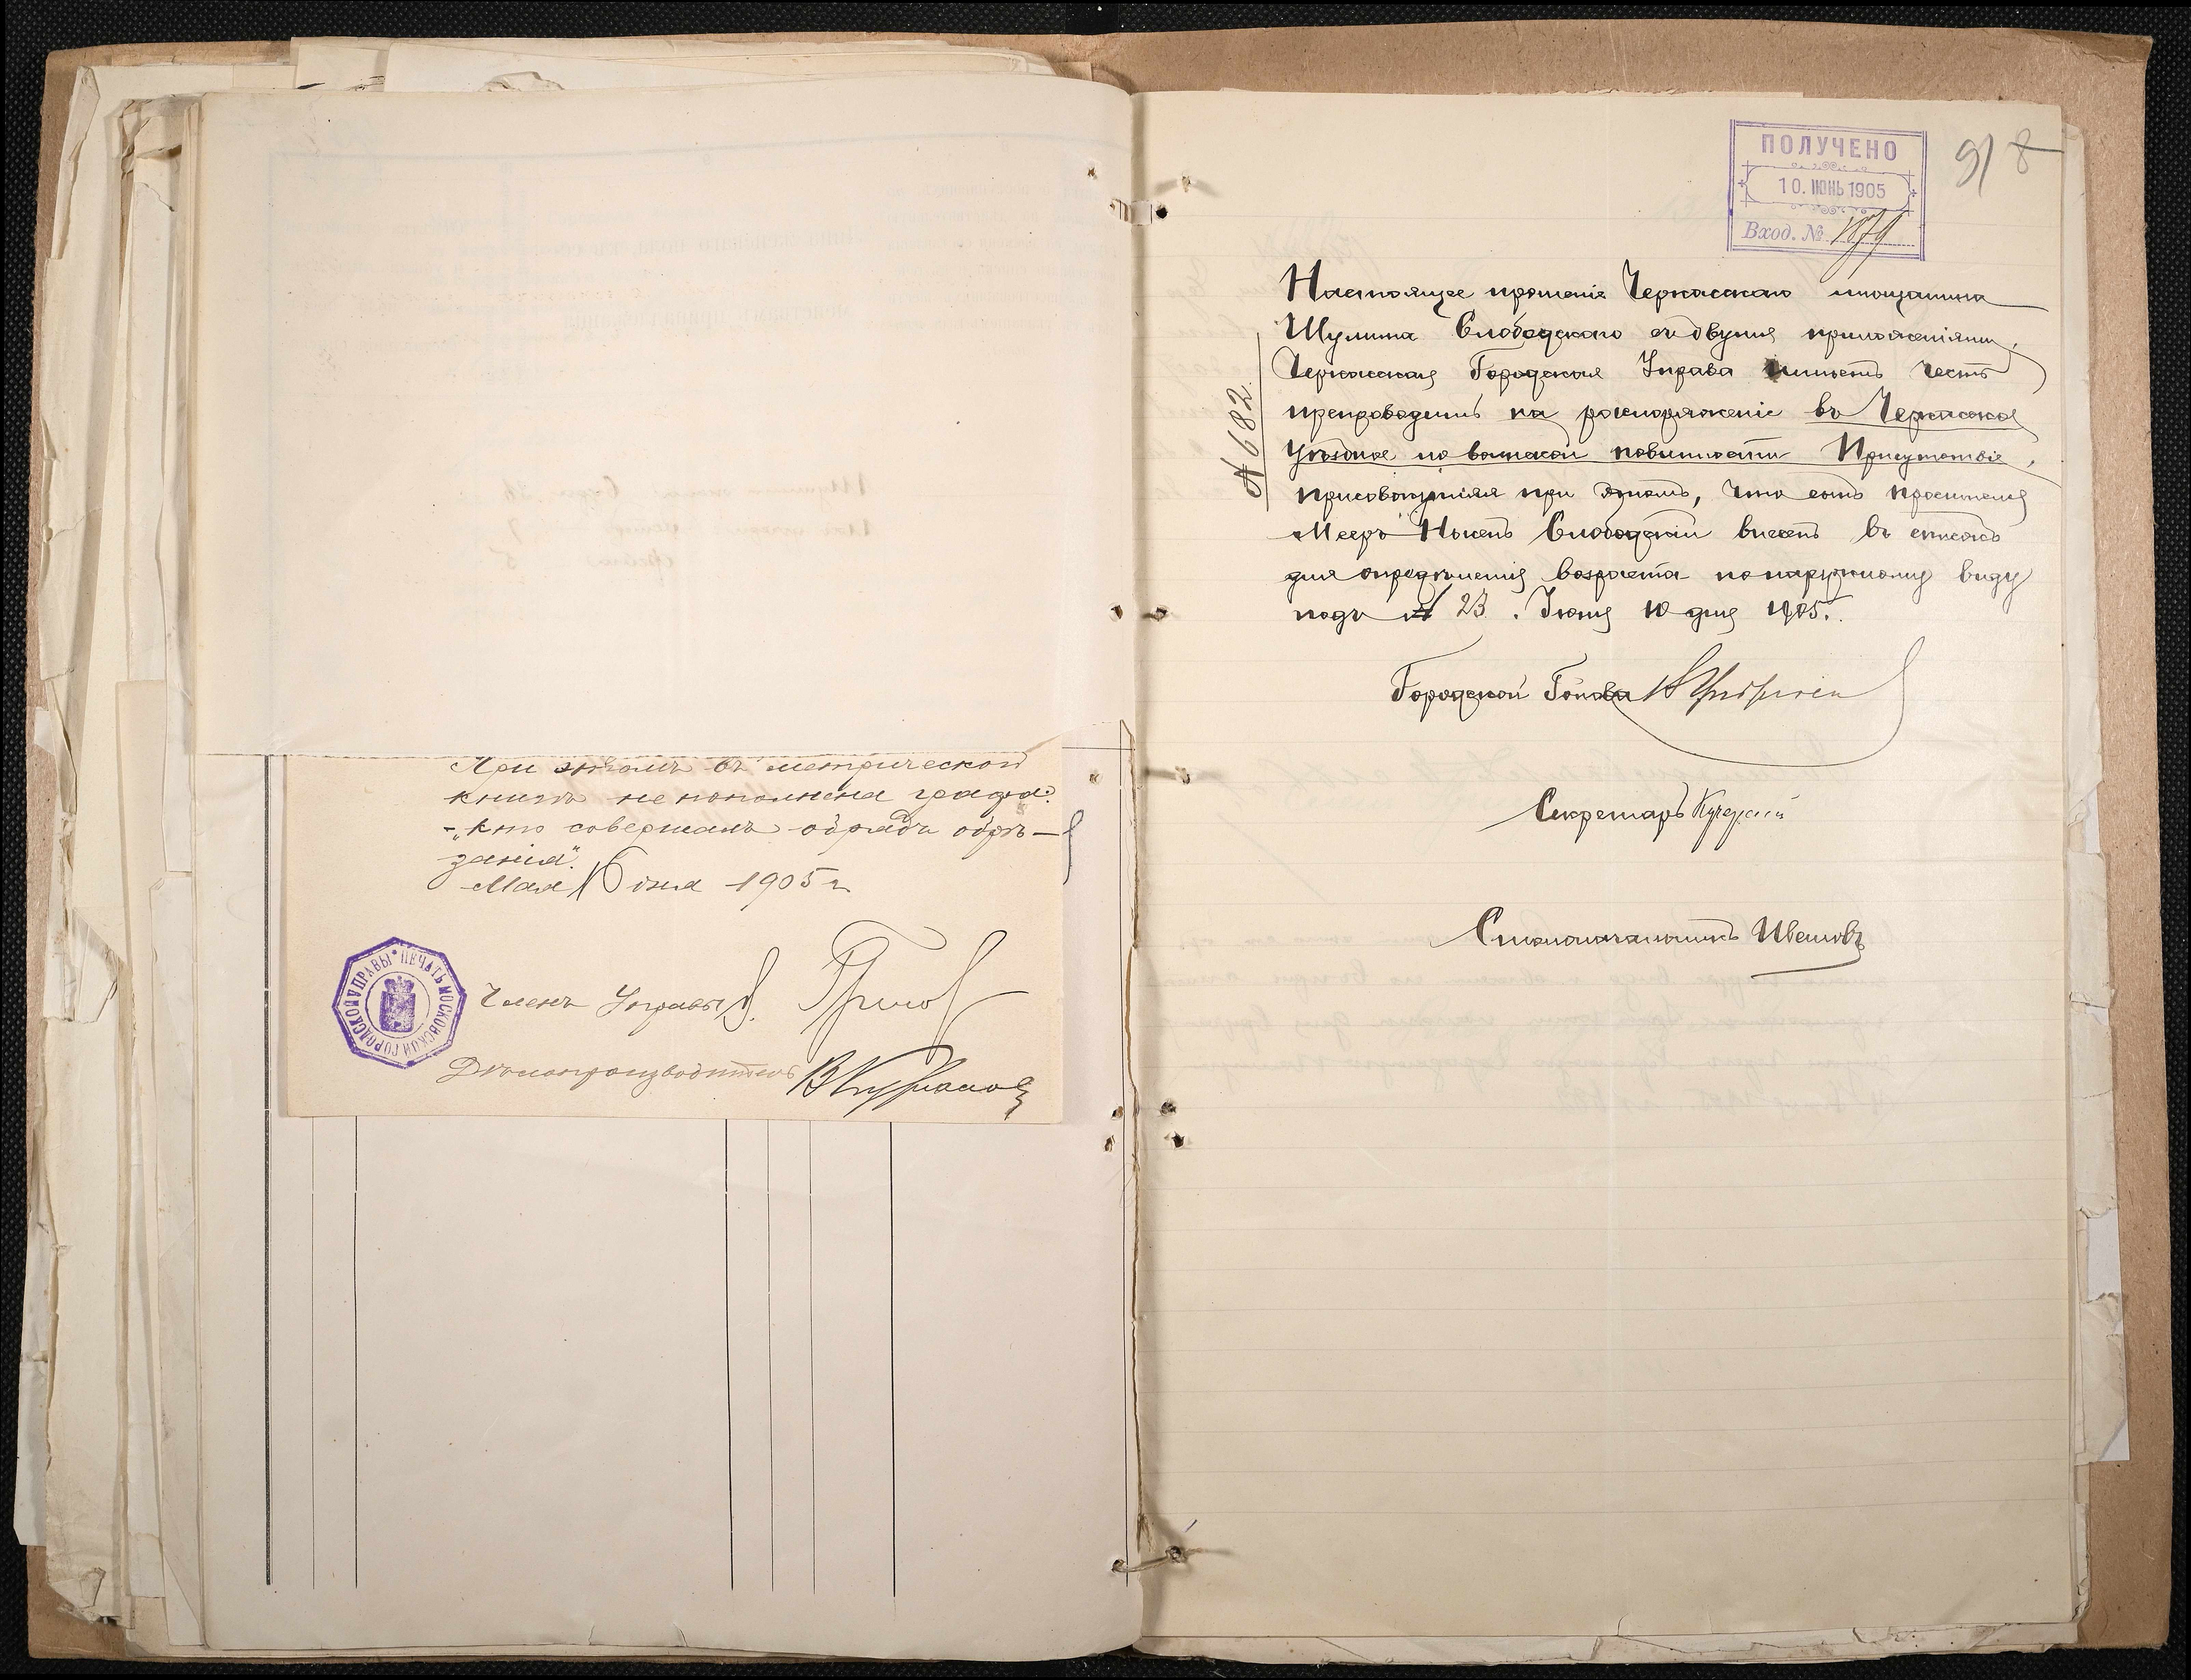 При этомъ въ метрической
книгѣ не пополнена графа:
-„кто совершалъ обрядъ обрѣ-
занія“.
Мая 16 дня 1905 г.
ПЕЧАТЬ МОСКОВСКОЙ ГОРОДСКОЙ УПРАВЫ
Членъ Управы
Дѣлопроизводитель
ПОЛУЧЕНО
10. ІЮНЬ 1905
Вход. № 1879
9 8
№ 682
Настоящее прошеніе Черкасскаго мѣщанина
Шулима Слободскаго съ двумя приложеніями,
Черкасская Городская Управа имѣетъ честь
препроводить на распоряженіе въ Черкасское
Уѣздное по воинской повинности Присутствіе,
присовокупляя при этомъ, что сынъ просителя
Мееръ Носенъ Слободскій внесенъ въ списокъ
для опредѣленія возраста по наружному виду
подъ № 23. Іюня 10 дня 1905 г.
Городской Голова
Секретарь
Столоначальникъ Ивановъ